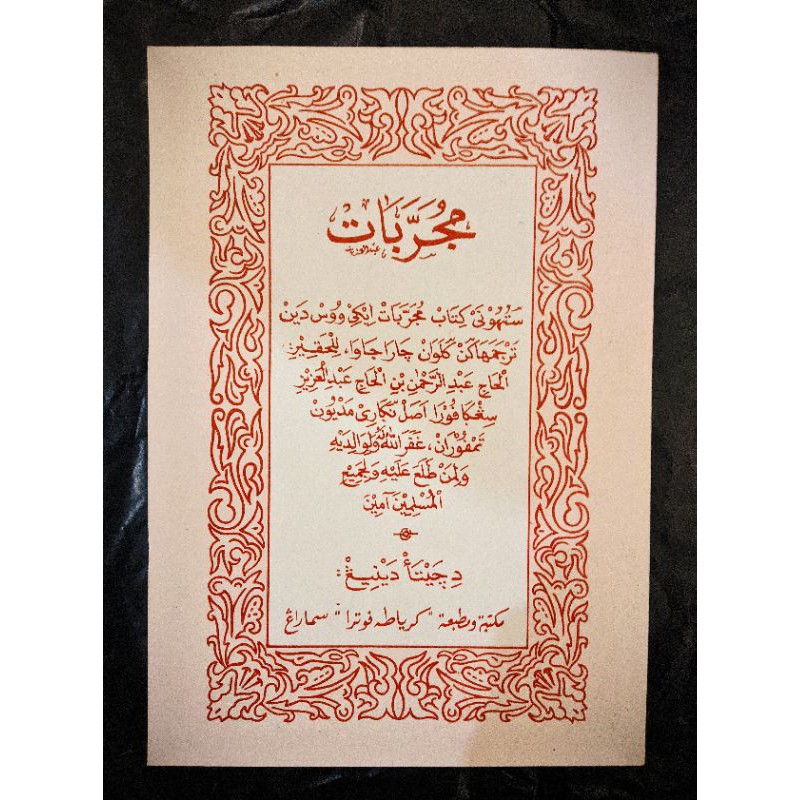 مُجَرَّبَات
عبدالعزيز
سَتُهُوْنَيْ كِتَابْ مُجَرَّبَاتْ اِيْكِيْ وُوْسْ دَيْنْ
تَرْجَمَهَاكَنْ كَلَوَانْ چَارَا جَاوَاء، لِلْحَقِيْرِ:
الْحَاجِ عَبْدِ الرَّحْمٰنِ بْنِ الْحَاجِ عَبْدِ الْعَزِيْزِ
سِڠْكَافُوْرَا اَصَلْ نَّڮَارِيْ مَدِيُوْنْ
تَمْفُوْرَانْ، غَفَرَ اللّٰهُ لَهُ وَلِوَالِدَيْهِ
وَلِمَنْ طَلَعَ عَلَيْهِ وَلِجَمِيْعِ
الْمُسْلِمِيْنَ آمِيْنَ
دِچَيْتَأْ دَيْنِيْڠْ:
مكتبة ومطبعة "كرياطه فوترا" سماراڠ